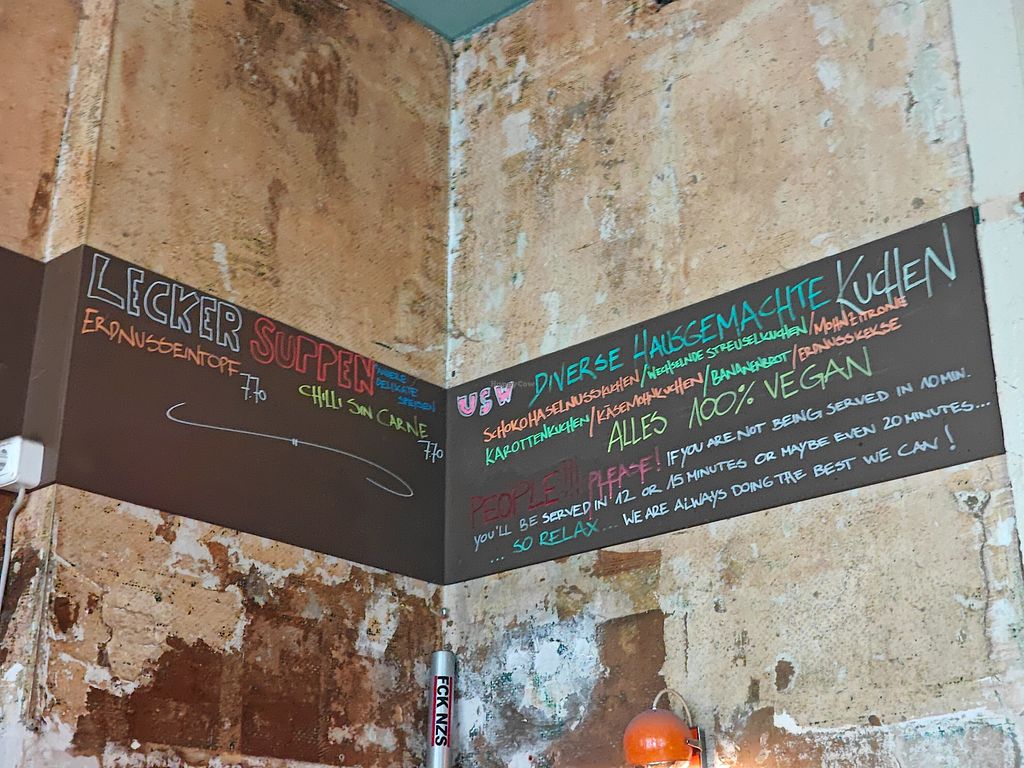 LECKER SUPPEN ANDERE DELIKATE SPEISEN
ERDNUSSEINTOPF 7.70
CHILLI SIN CARNE 7.70
USW DIVERSE HAUSGEMACHTE KUCHEN
SCHOKOHASELNUSSKUCHEN/WECHSELNDE STREUSELKUCHEN/MOHNZITRONE
KAROTTENKUCHEN/KÄSEMOHNKUCHEN/BANANENBROT/ERDNUSSKEKSE
ALLES 100% VEGAN
PEOPLE!!! PLEASE! IF YOU ARE NOT BEING SERVED IN 10 MIN.
YOU'LL BE SERVED IN 12 OR 15 MINUTES OR MAYBE EVEN 20 MINUTES...
... SO RELAX... WE ARE ALWAYS DOING THE BEST WE CAN!
FCK NZS